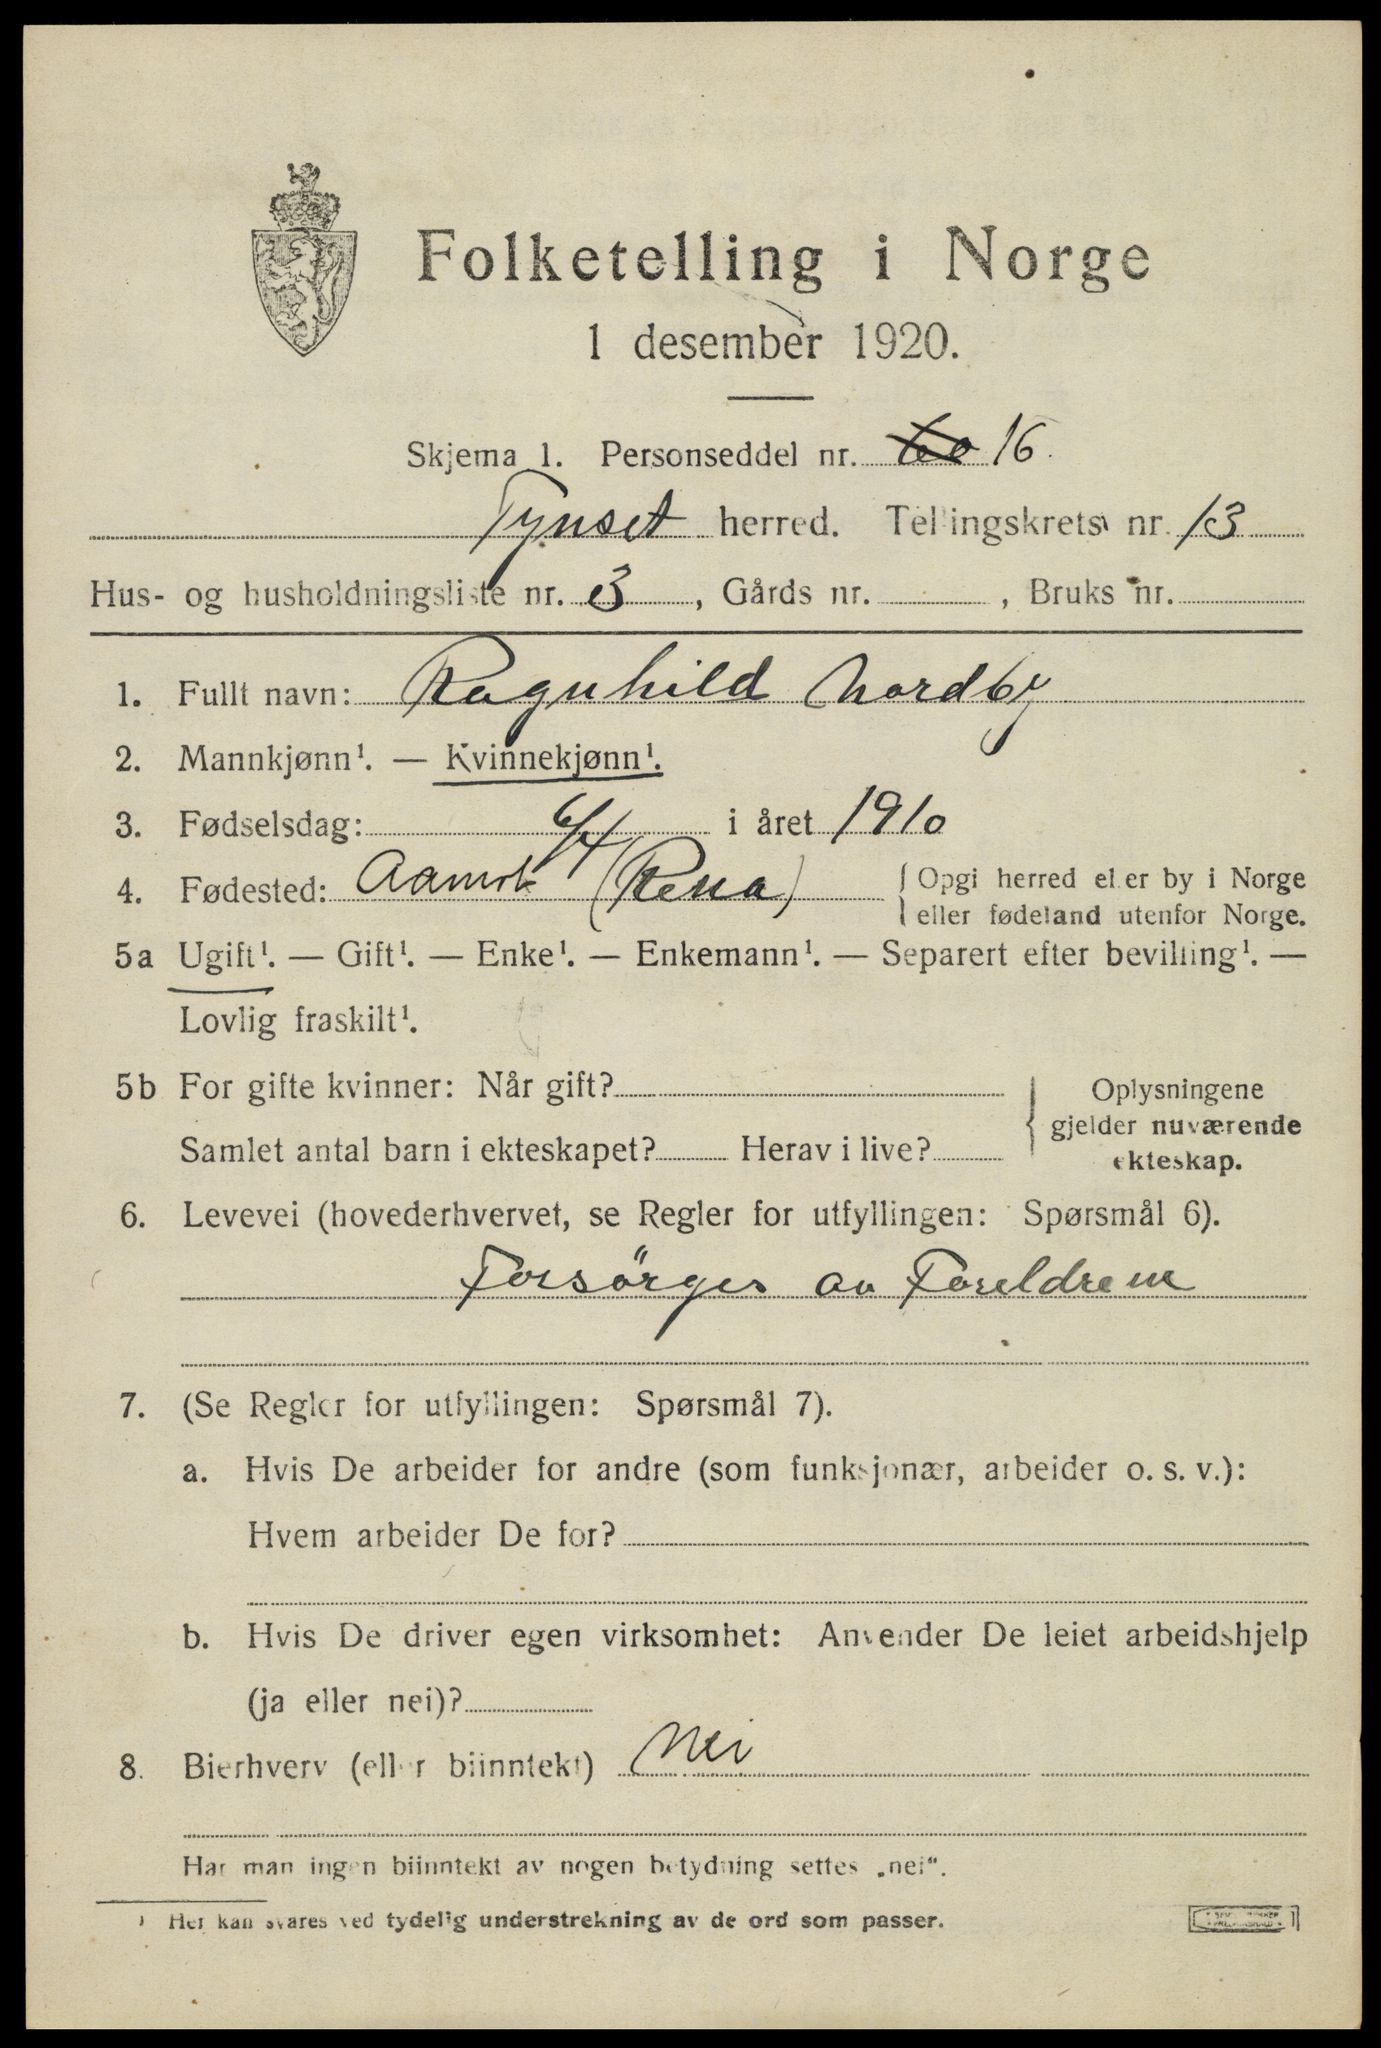 Folketelling i Norge
1 desember 1920.
Skjema 1. Personseddel nr. 60 16
Tynset herred. Tellingskrets nr. 13
Hus- og husholdningsliste nr. 3, Gårds nr. , Bruks nr.
1. Fullt navn: Ragnhild Nordby
2. Mannkjønn¹. — Kvinnekjønn¹.
3. Fødselsdag: 6/4 i året 1910
4. Fødested: Aamot (Rena) Opgi herred eller by i Norge
eller fødeland utenfor Norge.
5a Ugift¹. — Gift¹. — Enke¹. — Enkemann¹. — Separert efter bevilling¹. —
Lovlig fraskilt¹.
5b For gifte kvinner: Når gift? Oplysningene
gjelder nuværende
Samlet antal barn i ekteskapet? Herav i live?
ekteskap.
6. Levevei (hovederhvervet, se Regler for utfyllingen: Spørsmål 6).
Forsörges av Foreldrene
7. (Se Regler for utfyllingen: Spørsmål 7).
a. Hvis De arbeider for andre (som funksjonær, arbeider o. s. v.):
Hvem arbeider De for?
b. Hvis De driver egen virksomhet: Anvender De leiet arbeidshjelp
(ja eller nei)?
8. Bierhverv (eller biinntekt) Nei
Har man ingen biinntekt av nogen betydning settes „nei“.
¹ Her kan svares ved tydelig understrekning av de ord som passer.